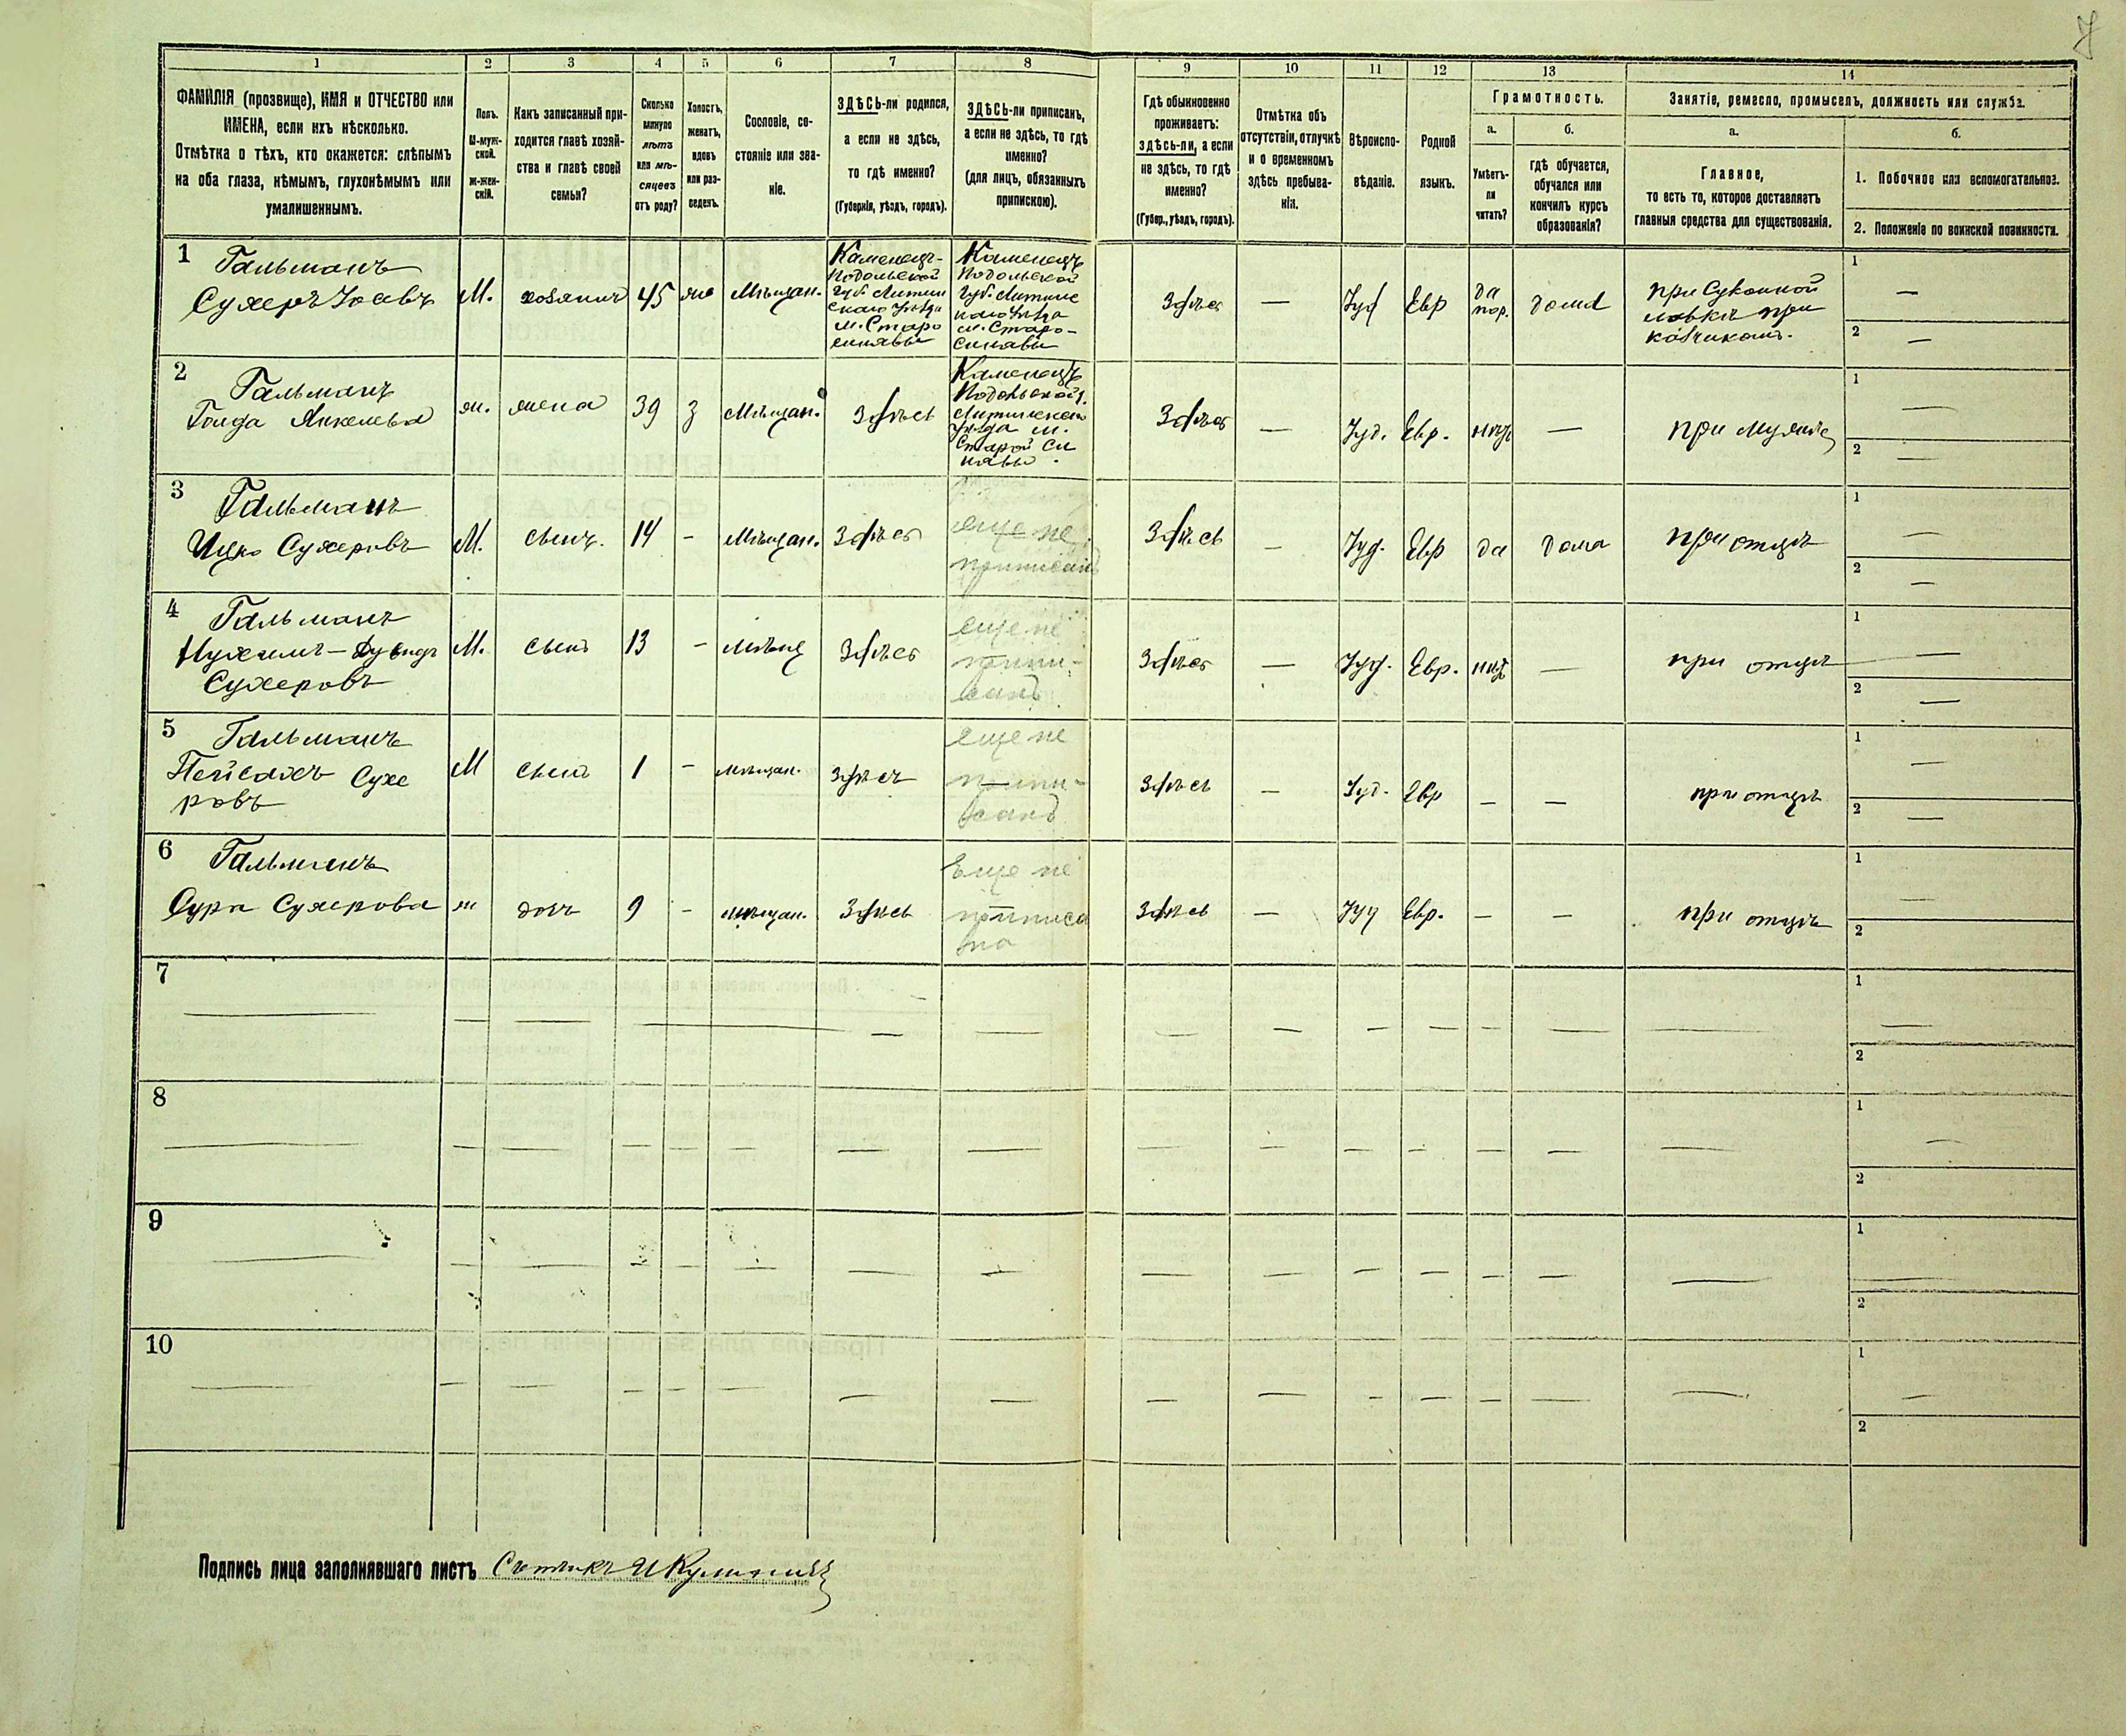 1 2 3 4 5 6 7 8 9 10 11 12 13 14
ФАМИЛІЯ (прозвище), ИМЯ и ОТЧЕСТВО или
ИМЕНА, если ихъ нѣсколько.
Отмѣтка о тѣхъ, кто окажется: слѣпымъ
на оба глаза, нѣмымъ, глухонѣмымъ или
умалишеннымъ.
Полъ.
М-муж-
ской.
Ж-жен-
скій.
Какъ записанный при-
ходится главѣ хозяй-
ства и главѣ своей
семьи?
Сколько
минуло
лѣтъ
или мѣ-
сяцевъ
отъ роду?
Холостъ,
женатъ,
вдовъ
или раз-
веденъ.
Сословіе, со-
стояніе или зва-
ніе.
ЗДѢСЬ-ли родился,
а если не здѣсь,
то гдѣ именно?
(Губернія, уѣздъ, городъ).
ЗДѢСЬ-ли приписанъ,
а если не здѣсь, то гдѣ
именно?
(для лицъ, обязанныхъ
припискою).
Гдѣ обыкновенно
проживаетъ:
здѣсь-ли, а если
не здѣсь, то гдѣ
именно?
(Губер., уѣздъ, городъ).
Отмѣтка объ
отсутствіи, отлучкѣ
и о временномъ
здѣсь пребыва-
ніи.
Вѣроиспо-
вѣданіе.
Родной
языкъ.
Грамотность.
а.
Умѣетъ-
ли
читать?
б.
гдѣ обучается,
обучался или
кончилъ курсъ
образованія?
Занятіе, ремесло, промыселъ, должность или служба.
а.
Главное,
то есть то, которое доставляетъ
главныя средства для существованія.
б.
1. Побочное или вспомогательное.
2. Положеніе по воинской повинности.
1
Гальманъ
Сухеръ Іосевъ
М.
хозяинъ
45
же
Мѣщан.
Каменецъ-
Подольской
Губ. Литин
скаго Уѣзда
м. Старо
синявы
Каменецъ
Подольской
Губ. Литинс
каго Уѣзда
м. Старо-
синявы
Здѣсь
—
Іуд
Евр
да
дома
при Суконной
лавки при
кащикомъ.
1 —
2 —
2
Гальманъ
Голда Янкелева
ж.
жена
39
З
Мѣщан.
Здѣсь
Каменецъ
Подольской Г.
Литинскаго
Уѣзда м.
Старой Си
нявы.
Здѣсь
—
Іуд.
Евр.
нѣтъ
—
при мужѣ
1 —
2 —
3
Гальманъ
Ицко Сухеровъ
М.
сынъ.
14
-
Мѣщан.
Здѣсь
еще не
приписанъ
Здѣсь
—
Іуд.
Евр
да
дома
при отцѣ
1 —
2 —
4
Гальманъ
Нухимъ-Дувидъ
Сухеровъ
М.
сынъ
13
-
мѣщ
Здѣсь
еще не
припи-
санъ
Здѣсь
—
Іуд.
Евр.
нѣтъ
—
при отцѣ
1 —
2 —
5
Гальманъ
Пейсахъ Сухе
ровъ
М
сынъ
1
-
мѣщан.
Здѣсь
еще не
припи-
санъ
Здѣсь
—
Іуд.
Евр
—
—
при отцѣ
1 —
2 —
6
Гальманъ
Сура Сухерова
ж
дочь
9
-
мѣщан.
Здѣсь
Еще не
приписа
на
Здѣсь
—
Іуд
Евр.
—
—
при отцѣ
1 —
2
7
1
2
8
1
2
9
1
2
10
1
2
Подпись лица заполнявшаго листъ